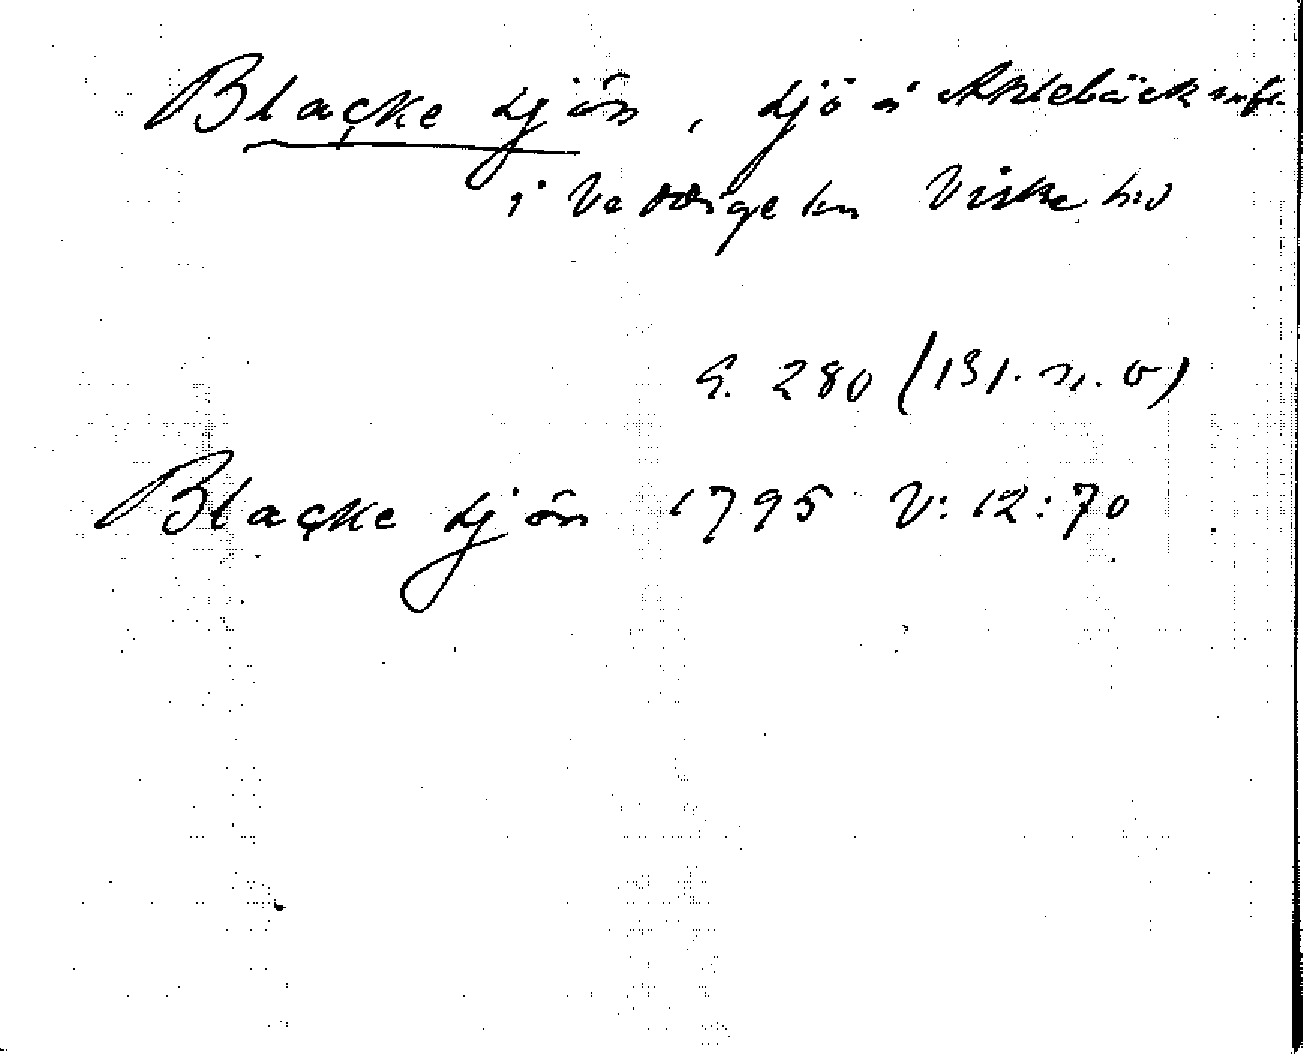 Blacke sjön, sjö å Ahlebäck
i Veddige sn Viske hd
S. 280 (131. n. ö)
Blacke sjön 1795 V: 12:70